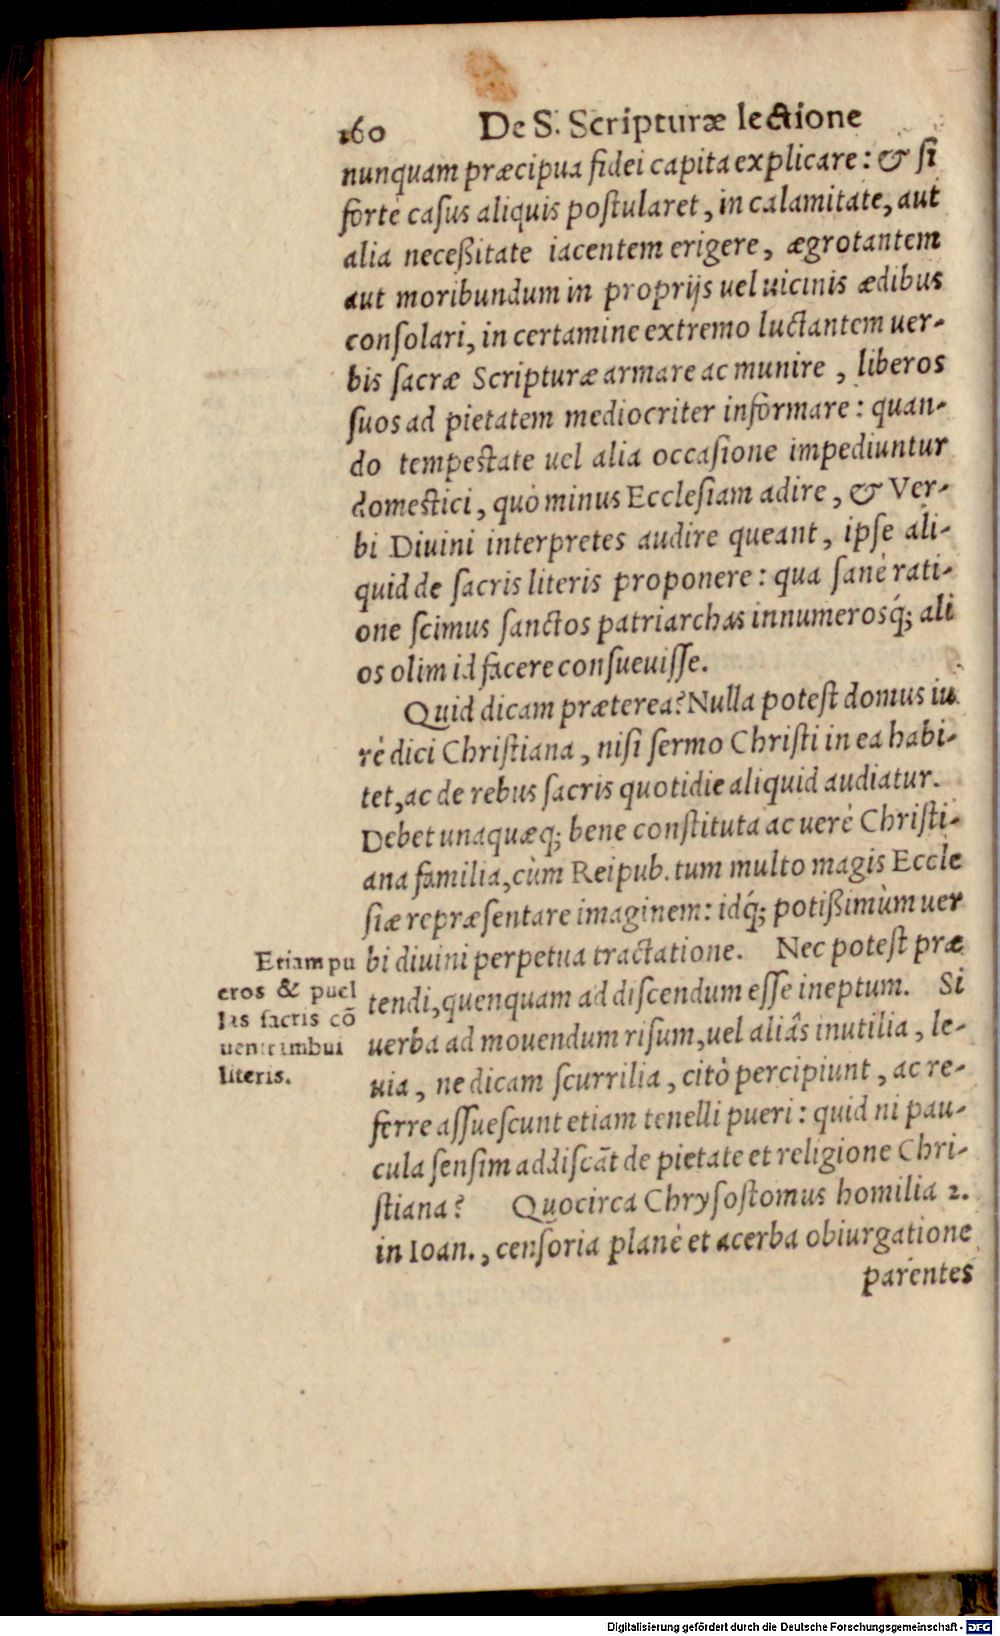 160 De S. Scripturæ lectione
nunquam præcipua fidei capita explicare: & ſi
fortè caſus aliquis poſtularet, in calamitate, aut
alia neceßitate iacentem erigere, ægrotantem
aut moribundum in proprijs uel uicinis ædibus
conſolari, in certamine extremo luctantem uer-
bis ſacræ Scripturæ armare ac munire, liberos
ſuos ad pietatem mediocriter informare: quan-
do tempeſtate uel alia occaſione impediuntur
domeſtici, quò minus Eccleſiam adire, & Ver-
bi Diuini interpretes audire queant, ipſe ali-
quid de ſacris literis proponere: qua ſanè rati-
one ſcimus ſanctos patriarchas innumerosq́; ali
os olim id facere conſueuiſſe.
Quid dicam præterea? Nulla poteſt domus iu
rè dici Chriſtiana, niſi ſermo Chriſti in ea habi-
tet, ac de rebus ſacris quotidie aliquid audiatur.
Debet unaquæq; bene conſtituta ac uerè Chriſti-
ana familia, cùm Reipub. tum multo magis Eccle
ſiæ repræſentare imaginem: idq́; potißimùm uer
bi diuini perpetua tractatione. Nec poteſt præ
tendi, quenquam ad diſcendum eſſe ineptum. Si
uerba ad mouendum riſum, uel aliâs inutilia, le-
uia, ne dicam scurrilia, citò percipiunt, ac re-
ferre aſſueſcunt etiam tenelli pueri: quid ni pau-
cula ſenſim addiſcãt de pietate et religione Chri-
ſtiana? Quocirca Chryſoſtomus homilia 2.
in Ioan., cenſoria planè et acerba obiurgatione
parentes
Etiam pu
eros & puel
las ſacris cõ
uenit imbui
literis.
Digitalisierung gefördert durch die Deutsche Forschungsgemeinschaft - DFG